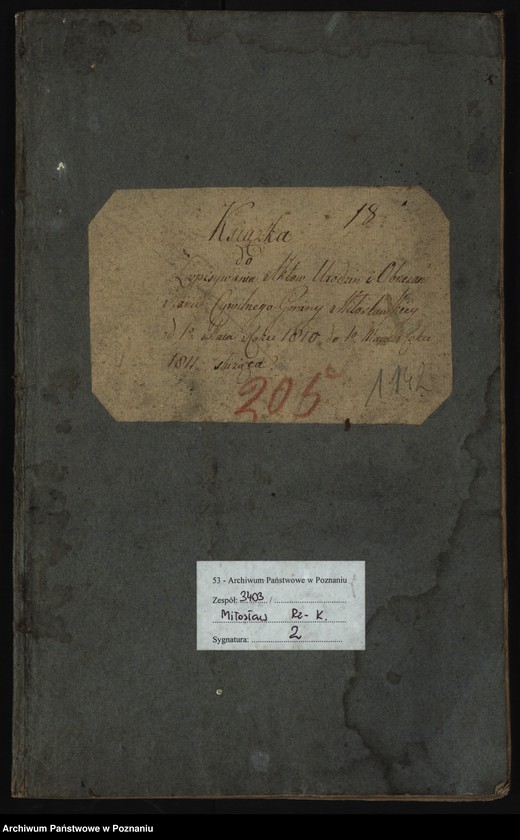 18
Książka
do
Zapisywania Aktów Urodzin
Stanu Cywilnego Gminy Miłosławskiey
d 1o Maia Roku 1810 do 1o Maia Roku
1811 służąca
205
1142
53 - Archiwum Państwowe w Poznaniu
Zespół: 3403 /
Miłosław Rz-K.
Sygnatura: 2
Archiwum Państwowe w Poznaniu